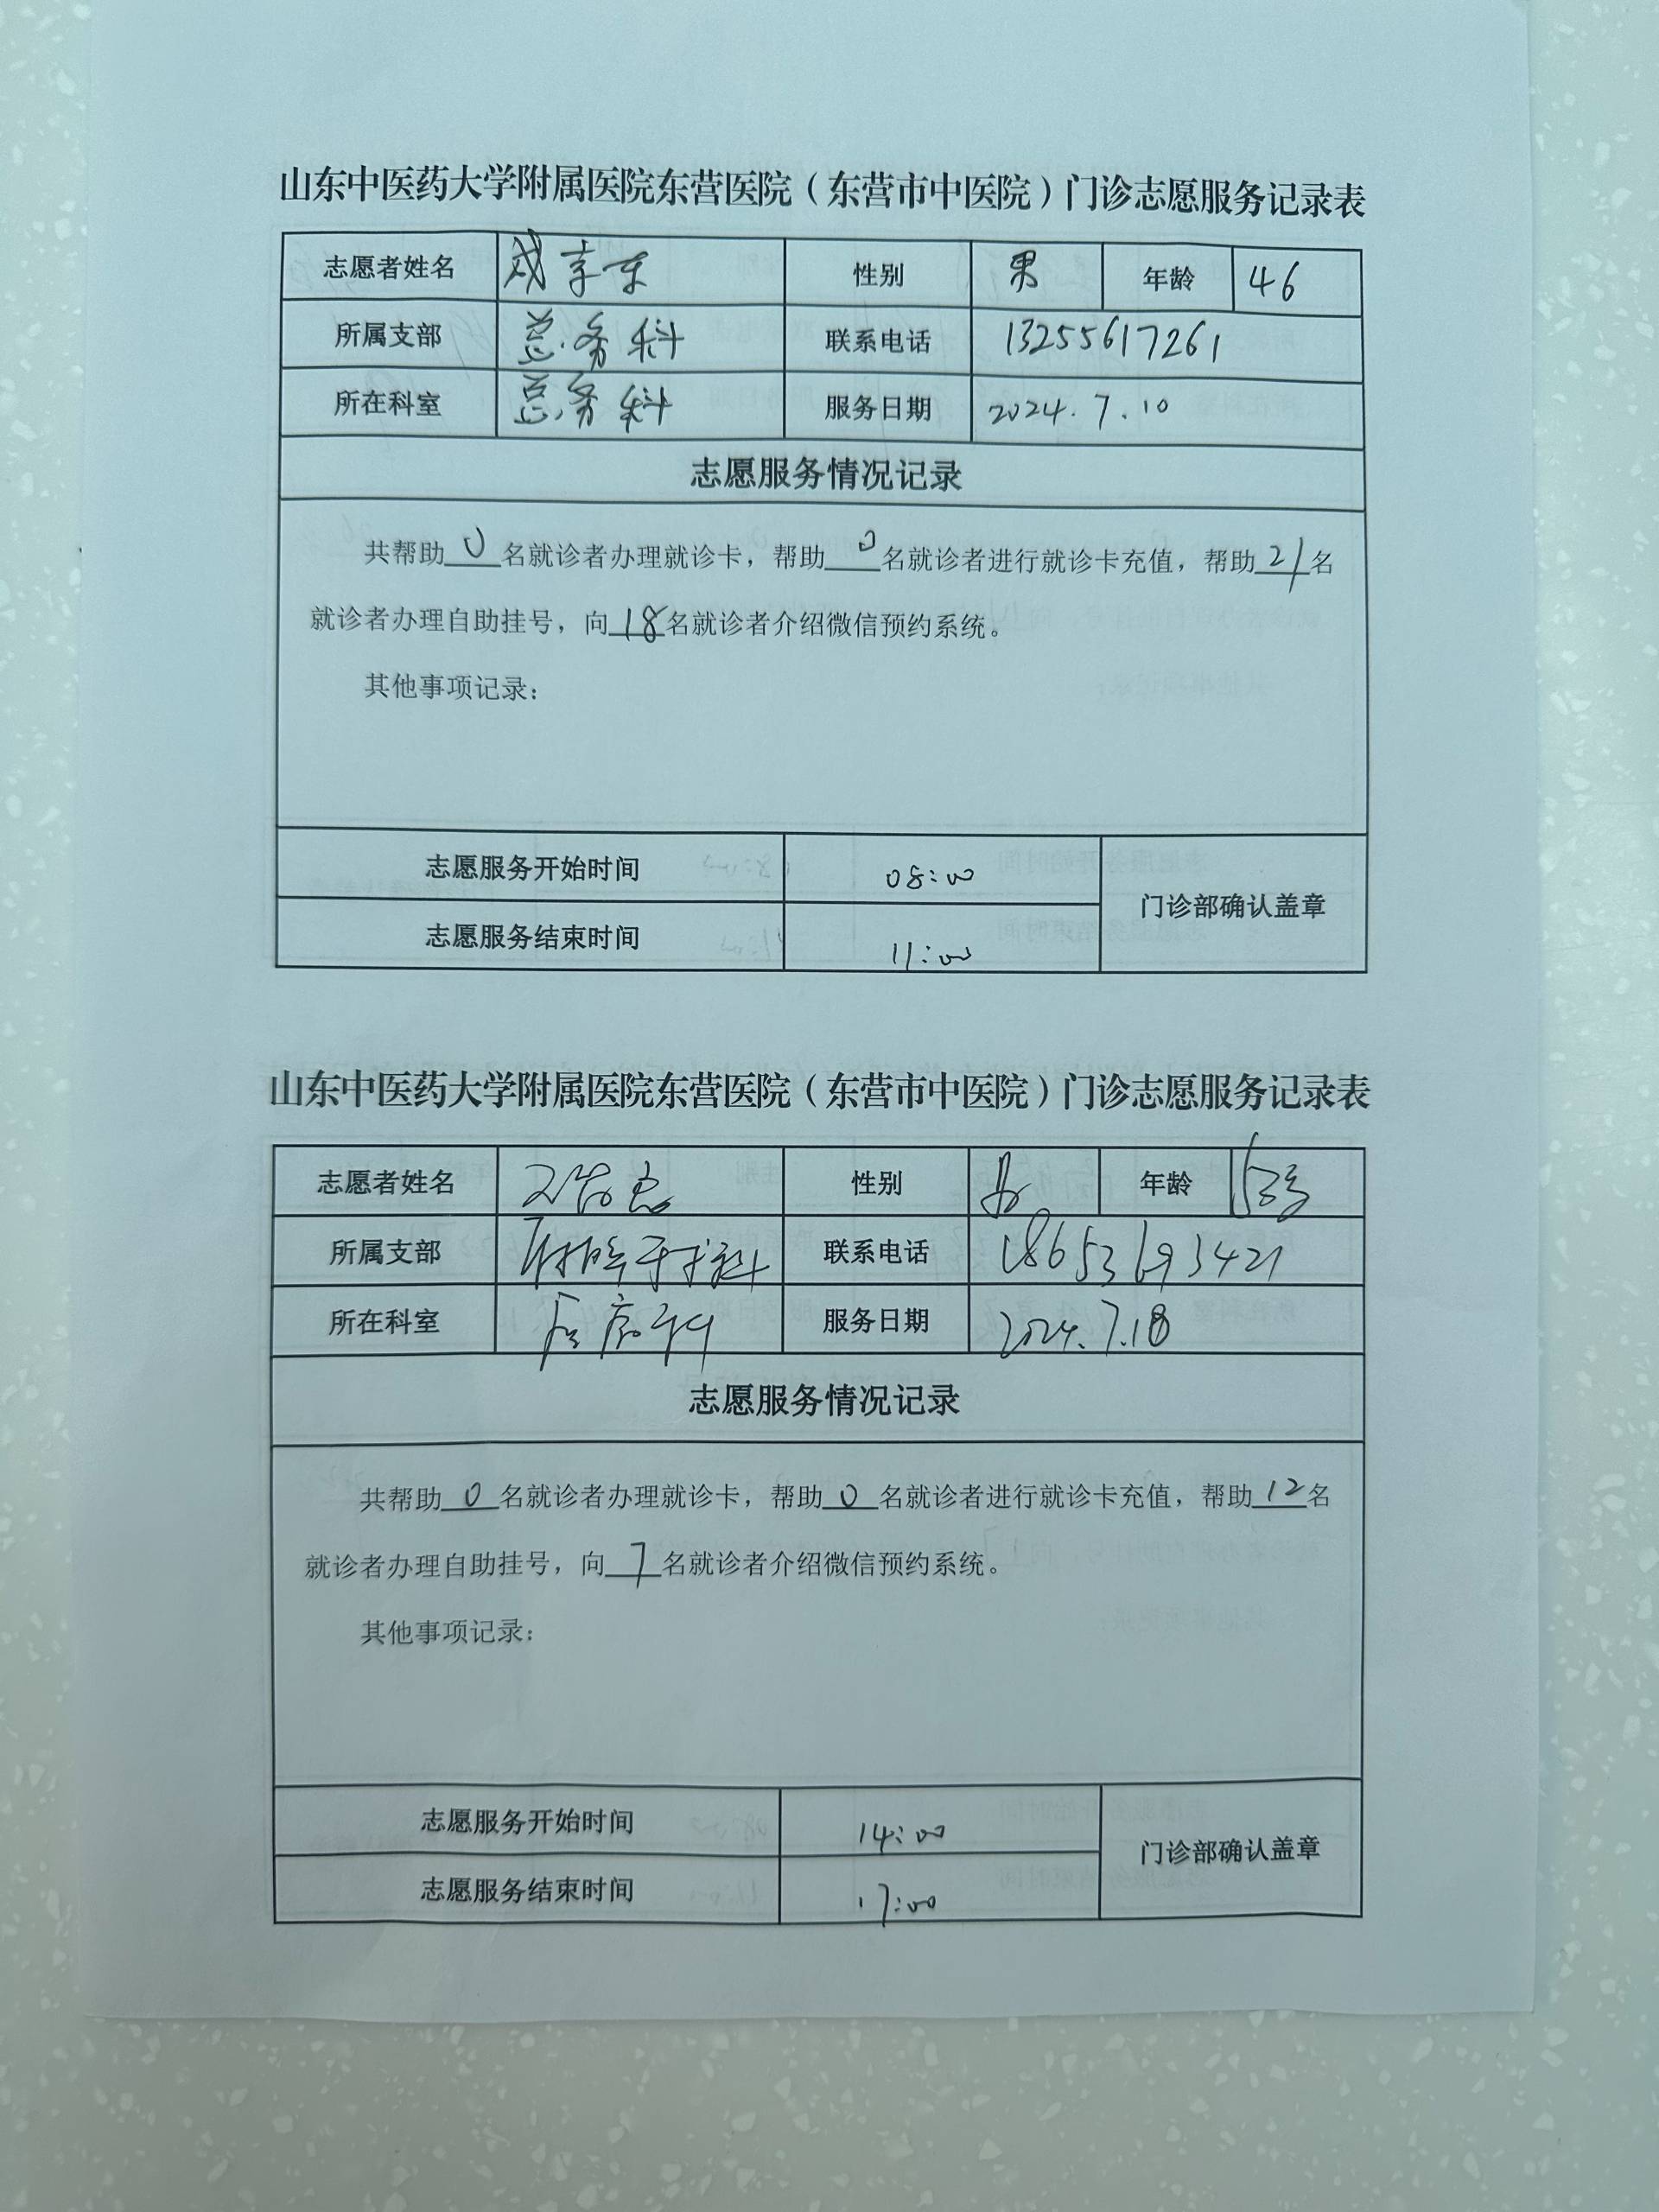 山东中医药大学附属医院东营医院（东营市中医院）门诊志愿服务记录表
志愿者姓名 性别 男 年龄 46
所属支部 总务科 联系电话 13255617261
所在科室 总务科 服务日期 2024.7.10
志愿服务情况记录
共帮助0名就诊者办理就诊卡，帮助0名就诊者进行就诊卡充值，帮助21名
就诊者办理自助挂号，向18名就诊者介绍微信预约系统。
其他事项记录：
志愿服务开始时间 08:00
门诊部确认盖章
志愿服务结束时间 11:00
山东中医药大学附属医院东营医院（东营市中医院）门诊志愿服务记录表
志愿者姓名 性别 男 年龄
所属支部 联系电话 18653693421
所在科室 服务日期 2024.7.18
志愿服务情况记录
共帮助0名就诊者办理就诊卡，帮助0名就诊者进行就诊卡充值，帮助12名
就诊者办理自助挂号，向7名就诊者介绍微信预约系统。
其他事项记录：
志愿服务开始时间 14:00
门诊部确认盖章
志愿服务结束时间 17:00